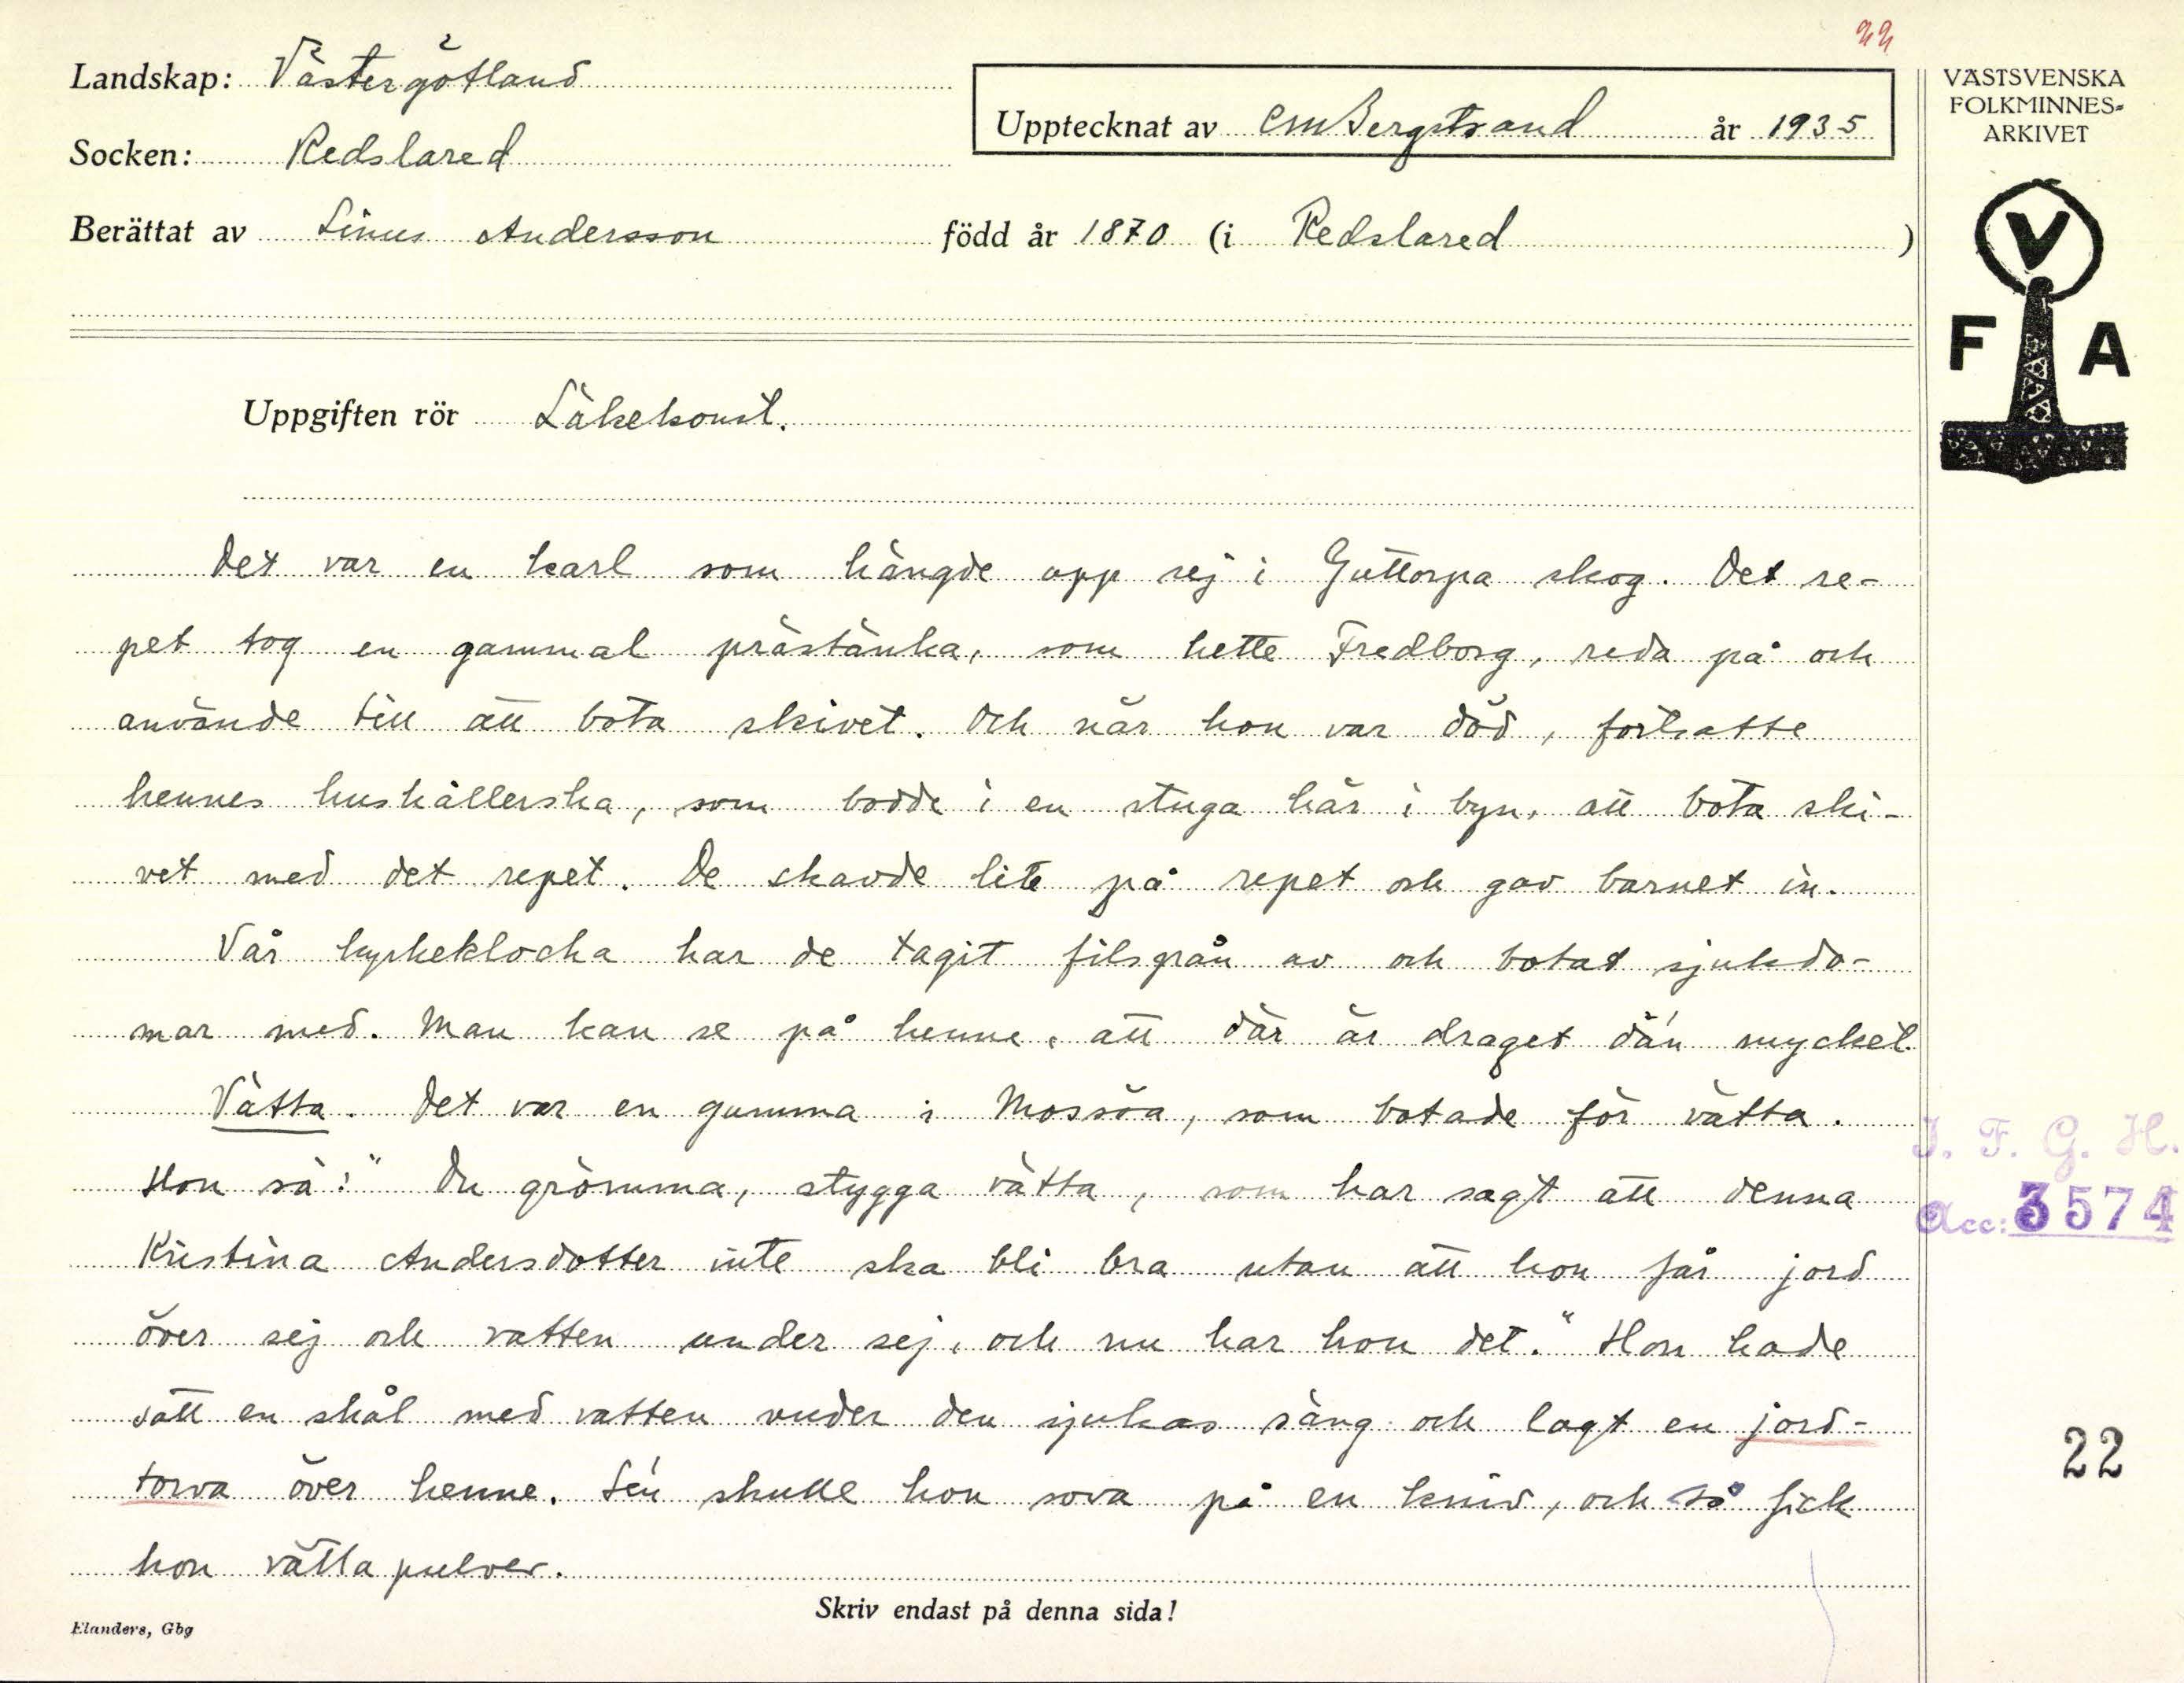 22
Landskap: Västergötland
Socken: Redslared
Upptecknat av CMBergstrand år 1935
Berättat av Linus Andersson född år 1870 (i Redslared )
VÄSTSVENSKA
FOLKMINNES-
ARKIVET
V
F A
Uppgiften rör Läkekonst.
Det var en karl som hängde opp sej i Guttorpa skog. Det re-
pet tog en gammal prästänka, som hette Fredborg, reda på och
använde till att bota skivet. Och när hon var död, fortsatte
hennes hushållerska, som bodde i en stuga här i byn, att bota ski-
vet med det repet. De skavde lite på repet och gav barnet in.
Vår kyrkeklocka har de tagit filspån av och botat sjukdo-
mar med. Man kan se på henne, att där är draget dän mycket.
Vätta. Det var en gumma i Mossöa, som botade för vätta.
Hon sa: "Du grömma, stygga vätta, som har sagt att denna
Kristina Andersdotter inte ska bli bra utan att hon får jord
över sej och vatten under sej, och nu har hon det." Hon hade
satt en skål med vatten under den sjukas säng och lagt en jord-
torva över henne. Sén skulle hon sova på en kniv, och så fick
hon vättapulver.
I. F. G. H.
Acc: 3574
22
Skriv endast på denna sida!
Elanders, Gbg